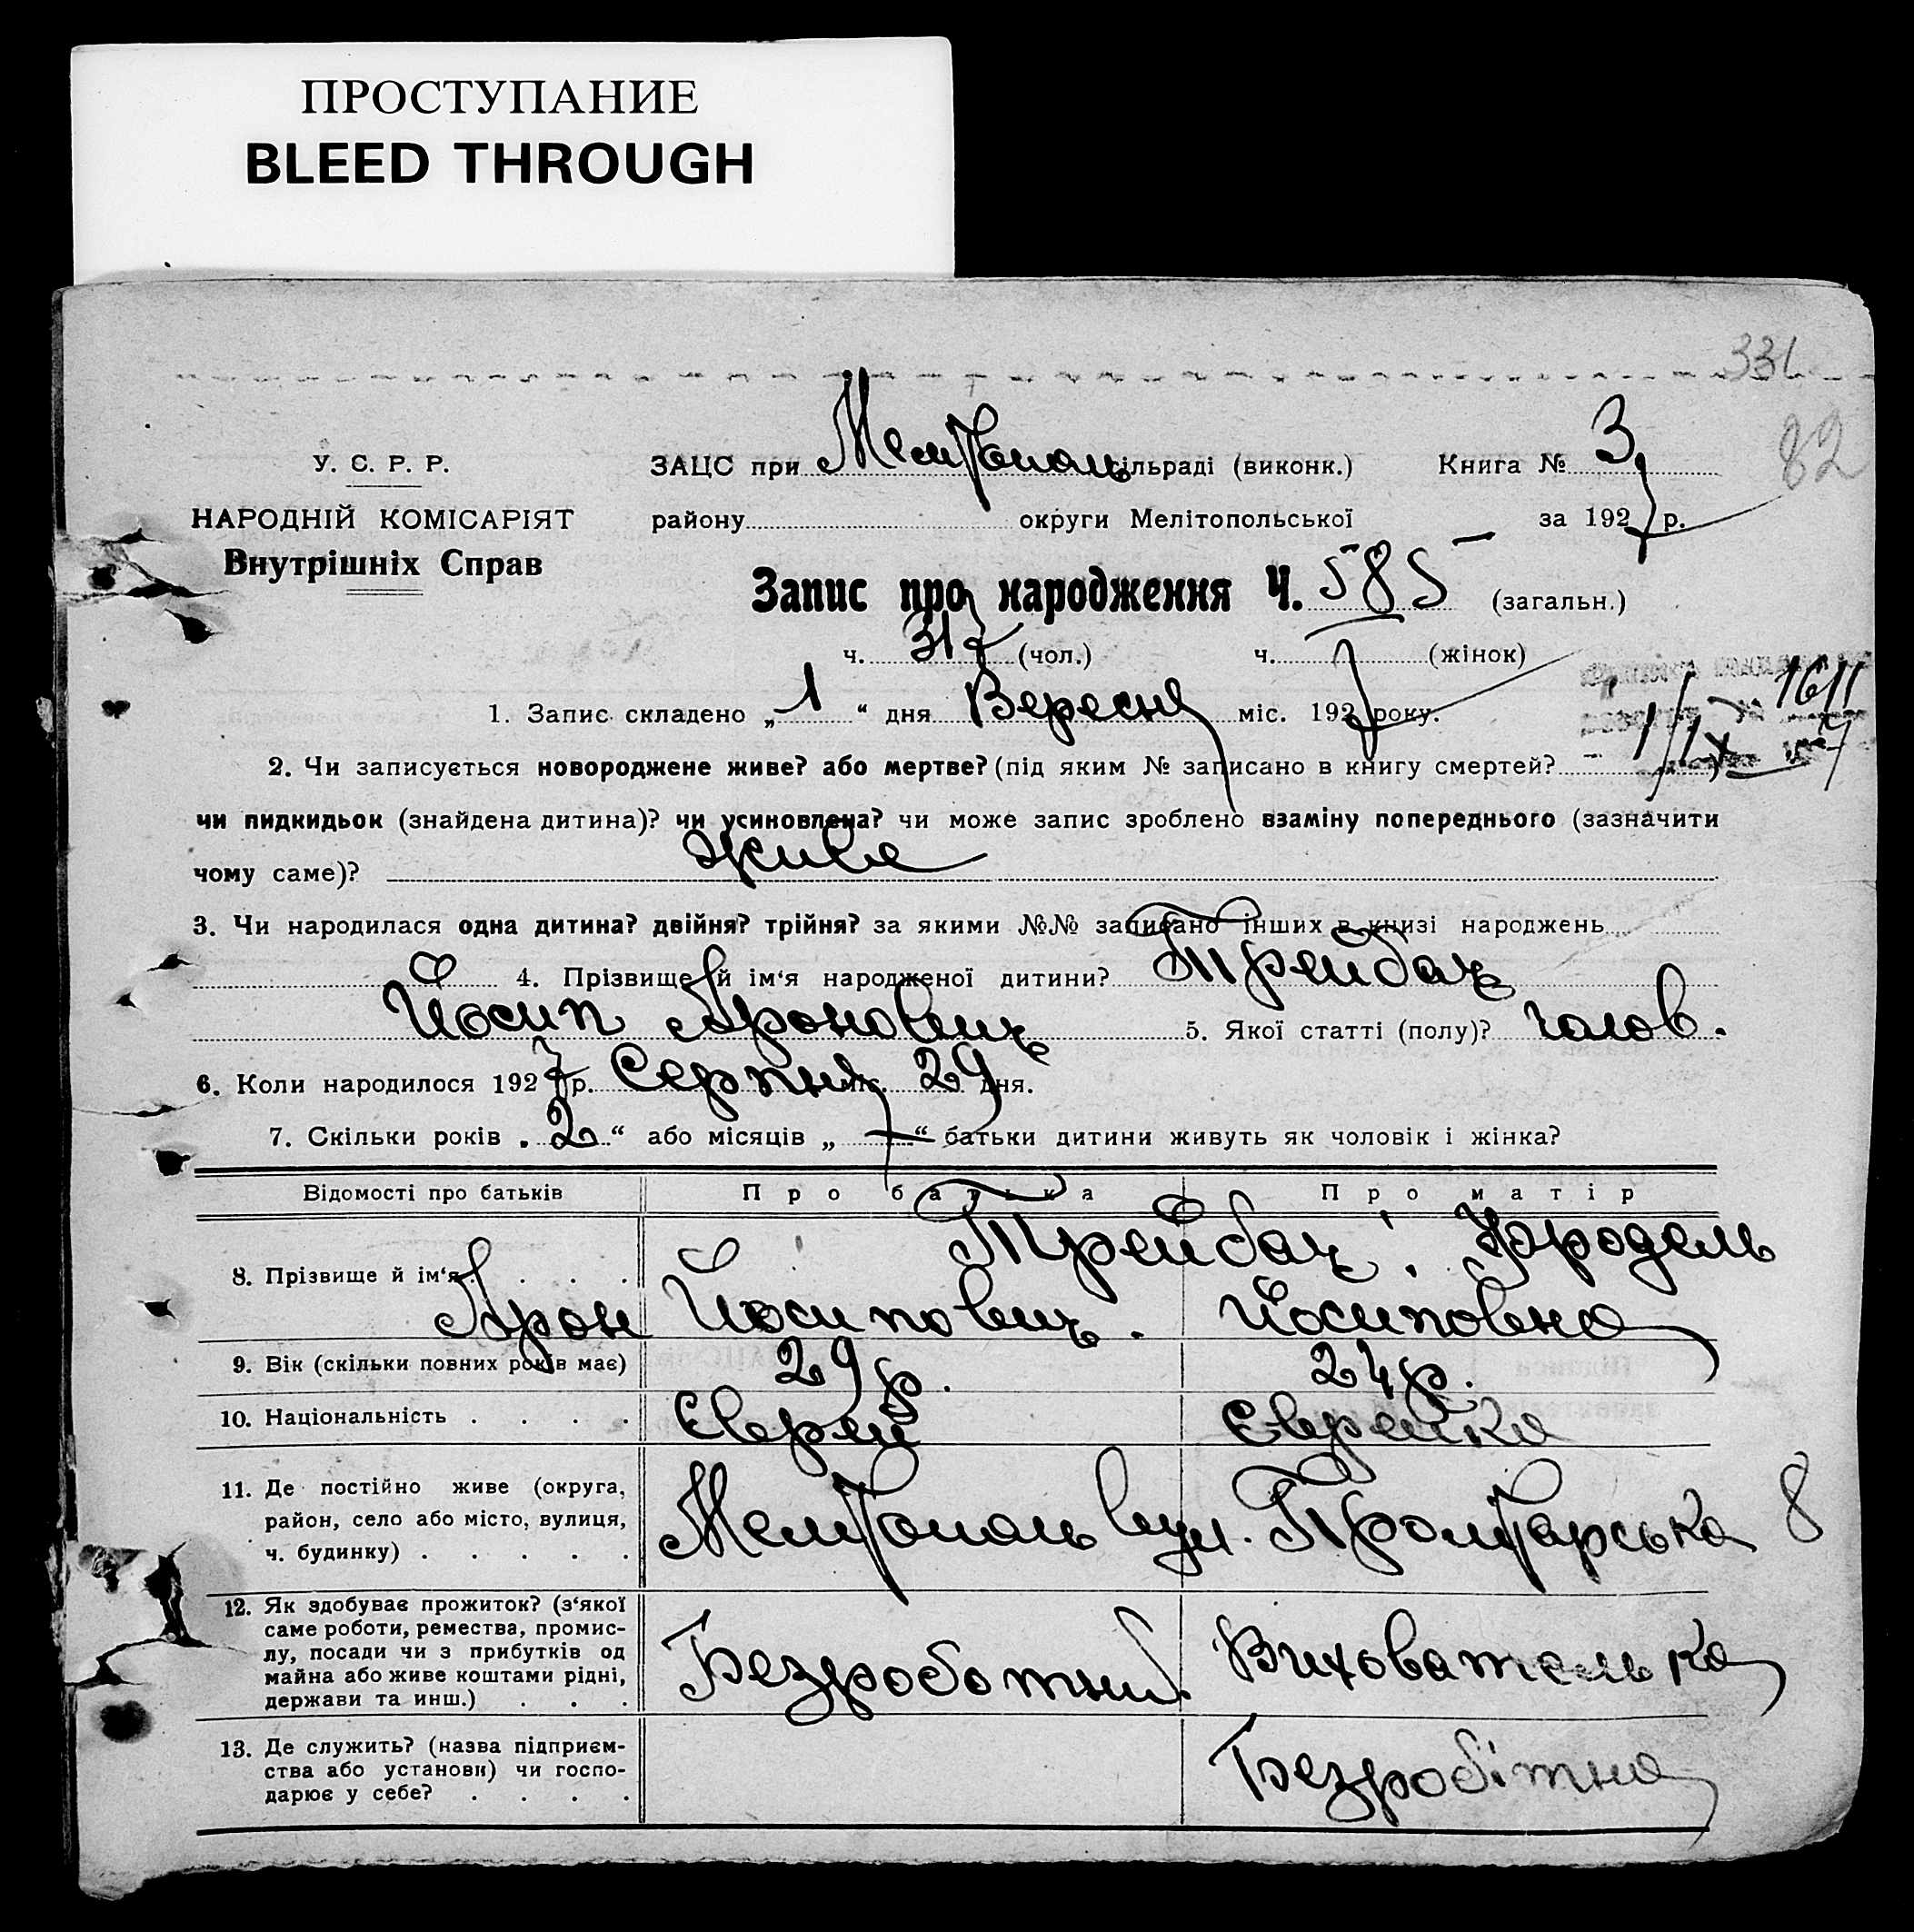 ПРОСТУПАНИЕ
BLEED THROUGH
331
82
У. С. Р. Р.
НАРОДНІЙ КОМІСАРІЯТ
Внутрішніх Справ
ЗАЦС при Мелітополь сільраді (виконк.) Книга № 3
району округи Мелітопольської за 1927 р.
Запис про народження Ч. 585 (загальн.)
ч. 317 (чол.) ч. (жінок)
1. Запис складено „1“ дня Вересня міс. 1927 року.
1611
2. Чи записується новороджене живе? або мертве? (під яким № записано в книгу смертей? )
чи пидкидьок (знайдена дитина)? чи усиновлена? чи може запис зроблено взаміну попереднього (зазначити
чому саме)? живе
3. Чи народилася одна дитина? двійня? трійня? за якими №№ записано інших в книзі народжень
4. Прізвище й ім‘я народженої дитини? Трейбач
Йосип Аронович 5. Якої статті (полу)? чолов.
6. Коли народилося 1927 р. Серпня міс. 29 дня.
7. Скільки років „2“ або місяців „—“ батьки дитини живуть як чоловік і жінка?
Відомості про батьків Про батька Про матір
8. Прізвище й ім‘я . . . . Трейбач Фродель
Арон Йосипович. Йосиповна
9. Вік (скільки повних років має) 29 р. 24 р.
10. Національність . . . . Єврей Єврейка
11. Де постійно живе (округа,
район, село або місто, вулиця,
ч. будинку) . . . . .
Мелітополь вул. Пролітарська 8
12. Як здобуває прожиток? (з‘якої
саме роботи, ремества, промис-
лу, посади чи з прибутків од
майна або живе коштами рідні,
держави та инш.) . . .
Безроботний. Вихователька
13. Де служить? (назва підприєм-
ства або установи) чи госпо-
дарює у себе? . . . .
Безробітна